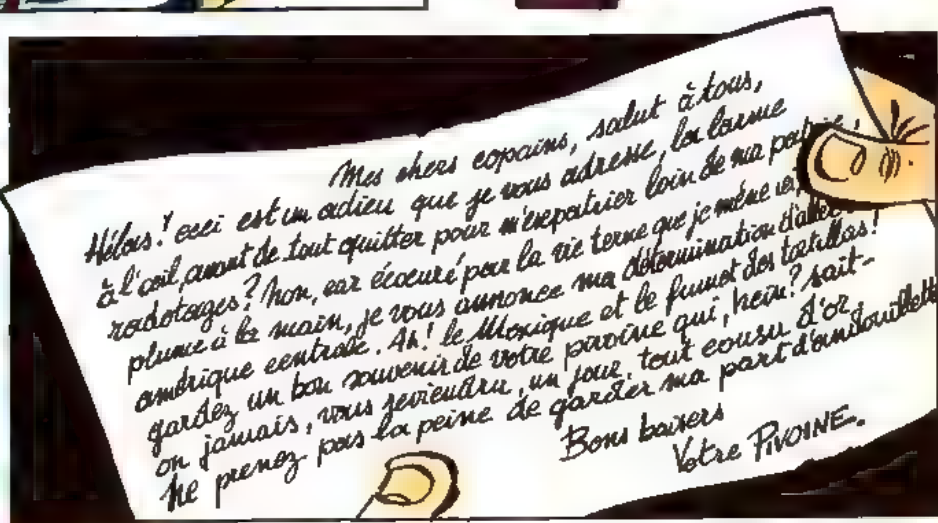 Mes chers copains, salut à tous,
Hélas! ceci est un adieu que je vous adresse, la larme
à l'œil, avant de tout quitter pour m'expatrier loin de ma patrie,
radotages? non, car écœuré par la vie terne que je mène ici,
plume à la main, je vous annonce ma détermination d'aller
amérique centrale. Ah! le Mexique et le fumet des tortillas!
gardez un bon souvenir de votre pivoine qui, hein? sait-
on jamais, vous reviendra, un jour, tout cousu d'or.
Ne prenez pas la peine de garder ma part d'andouillette
Bons baisers
Votre PIVOINE.